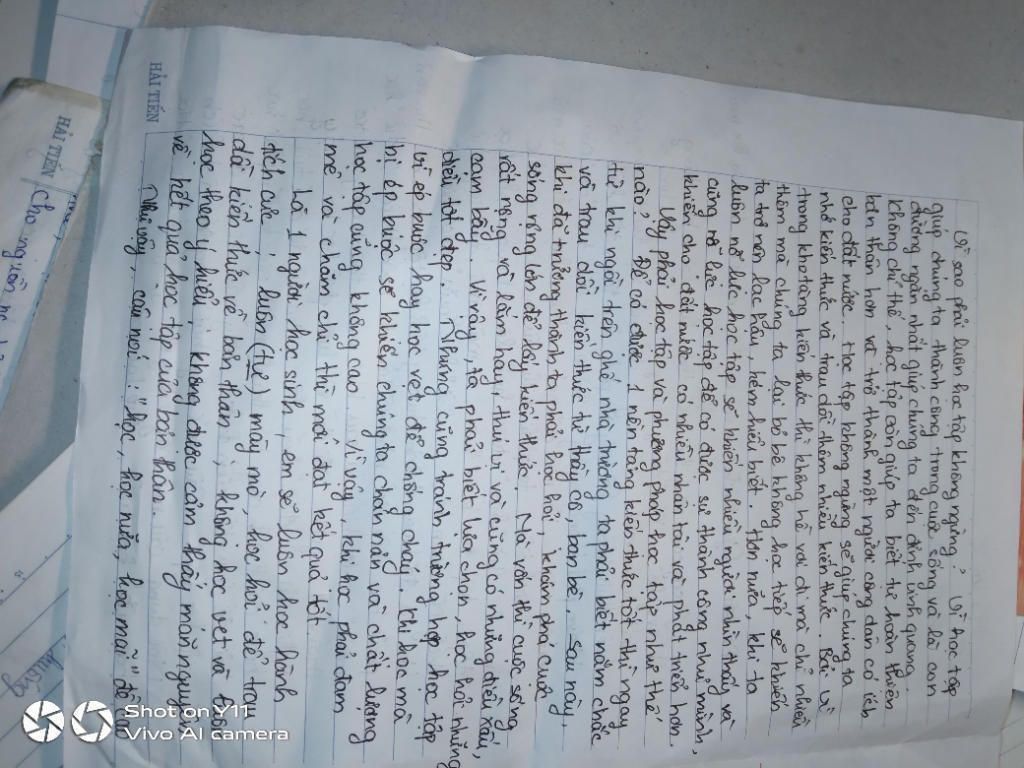 Vì sao phải luôn học tập không ngừng? Vì học tập
giúp chúng ta thành công trong cuộc sống và là con
đường ngắn nhất giúp chúng ta đến đỉnh vinh quang.
Không chỉ thế, học tập còn giúp ta biết tự hoàn thiện
bản thân hơn và trở thành một người công dân có ích
cho đất nước. Học tập không ngừng sẽ giúp chúng ta
nhớ kiến thức và trau dồi thêm nhiều kiến thức. Bởi vì
trong kho tàng kiến thức thì không hề vơi đi mà chỉ nhiều
thêm mà chúng ta lại bỏ bê không học tiếp sẽ khiến
ta trở nên lạc hậu, kém hiểu biết. Hơn nữa, khi ta
luôn nỗ lực học tập sẽ khiến nhiều người nhìn thấy và
cũng nỗ lực học tập để có được sự thành công như mình,
khiến cho đất nước có nhiều nhân tài và phát triển hơn.
Vậy phải học tập và phương pháp học tập như thế
nào? Để có được 1 nền tảng kiến thức tốt thì ngay
từ khi ngồi trên ghế nhà trường ta phải biết nắm chắc
và trau dồi kiến thức từ thầy cô, bạn bè. Sau này,
khi đã trưởng thành ta phải học hỏi, khám phá cuộc
sống rộng lớn để lấy kiến thức. Mà vốn thì cuộc sống
rất rộng và lắm hay, thú vị và cũng có những điều xấu,
cạm bẫy. Vì vậy, ta phải biết lựa chọn, học hỏi những
điều tốt đẹp. Nhưng cũng tránh trường hợp học tập
vì ép buộc hay học vẹt để chống cháy. Khi học mà
bị ép buộc sẽ khiến chúng ta chán nản và chất lượng
học tập cũng không cao. Vì vậy, khi học phải đam
mê và chăm chỉ thì mới đạt kết quả tốt.
Là 1 người học sinh, em sẽ luôn học hành
tích cực, luôn (tự) mày mò, học hỏi để trau
dồi kiến thức về bản thân, không học vẹt và
học theo ý hiểu, không được cảm thấy mãn nguyện
về kết quả học tập của bản thân.
Như vậy, câu nói: "học, học nữa, học mãi" đã cho
HẢI TIẾN
HẢI TIẾN
Shot on Y11
Vivo AI camera